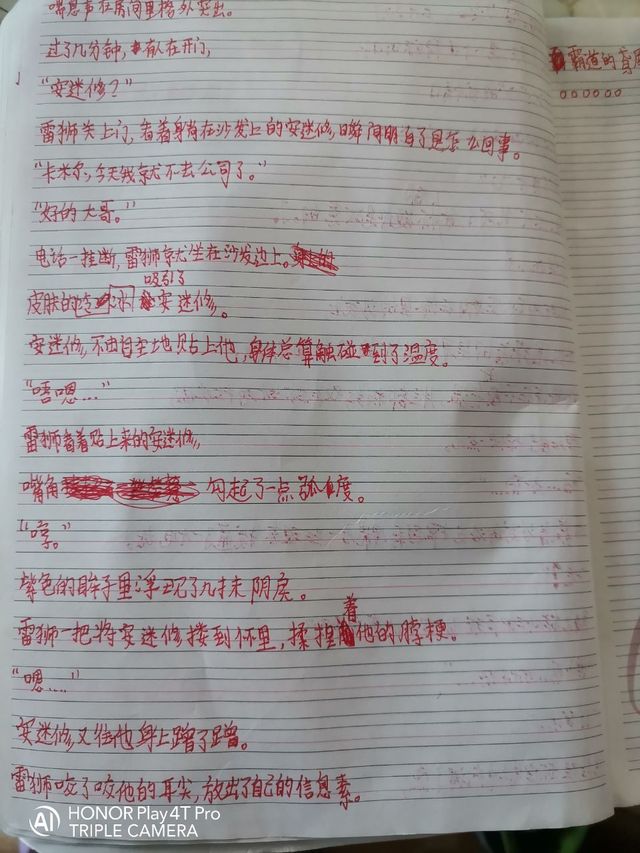 喘息声在房间里格外突出。
过了几分钟，有人在开门，
“安迷修？”
雷狮关上门，看着身躺在沙发上的安迷修，瞬间明白了是怎么回事。
“卡米尔，今天我就不去公司了。”
“好的大哥。”
电话一挂断，雷狮就坐在沙发边上。
吸引了
皮肤的冰安迷修。
安迷修，不由自主地贴上他，身体总算触碰到了温度。
“唔嗯...”
雷狮看着贴上来的安迷修，
嘴角勾起了一点弧度。
“哼。”
紫色的眸子里浮现了几抹阴戾。
着
雷狮一把将安迷修搂到怀里，揉捏他的脖梗。
“嗯....”
安迷修又往他身上蹭了蹭。
雷狮咬了咬他的耳尖，放出了自己的信息素。
霸道的
。。。。。。
AI
HONOR Play4T Pro
TRIPLE CAMERA